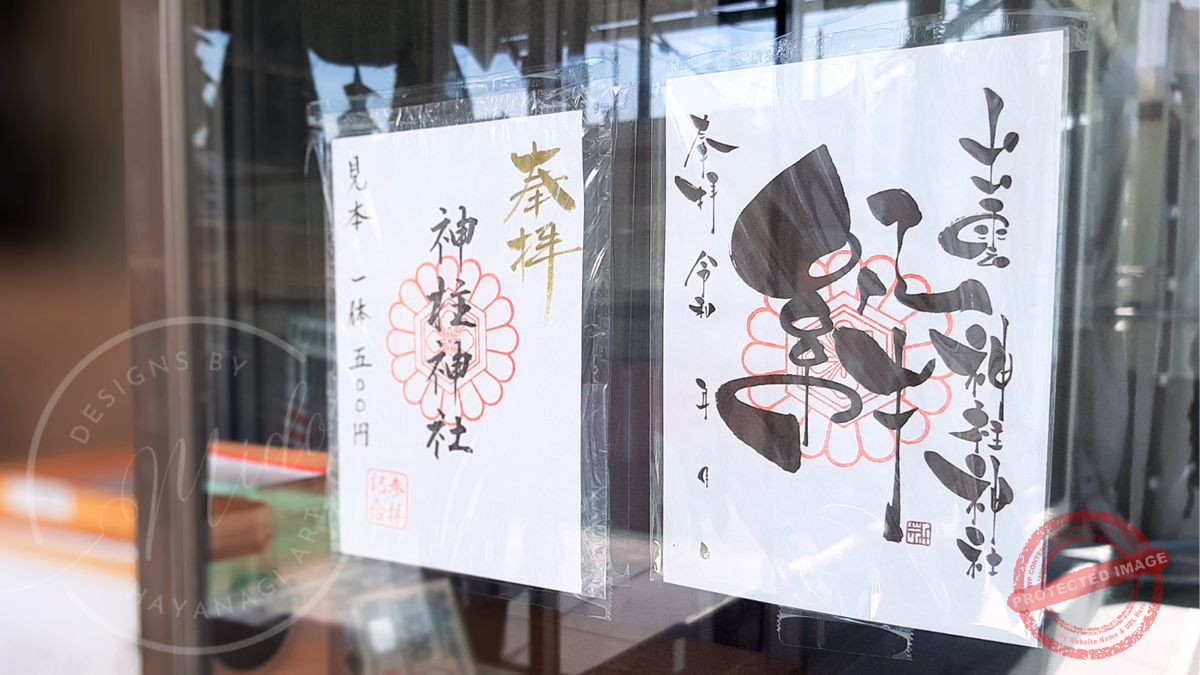 奉拝
神柱神社
見本 一体 五〇〇円
奉拝
記念
出雲神柱神社
奉拝 令和 年 月 日
DESIGNS BY
Mido
HAYANAGI ARI
PROTECTED IMAGE